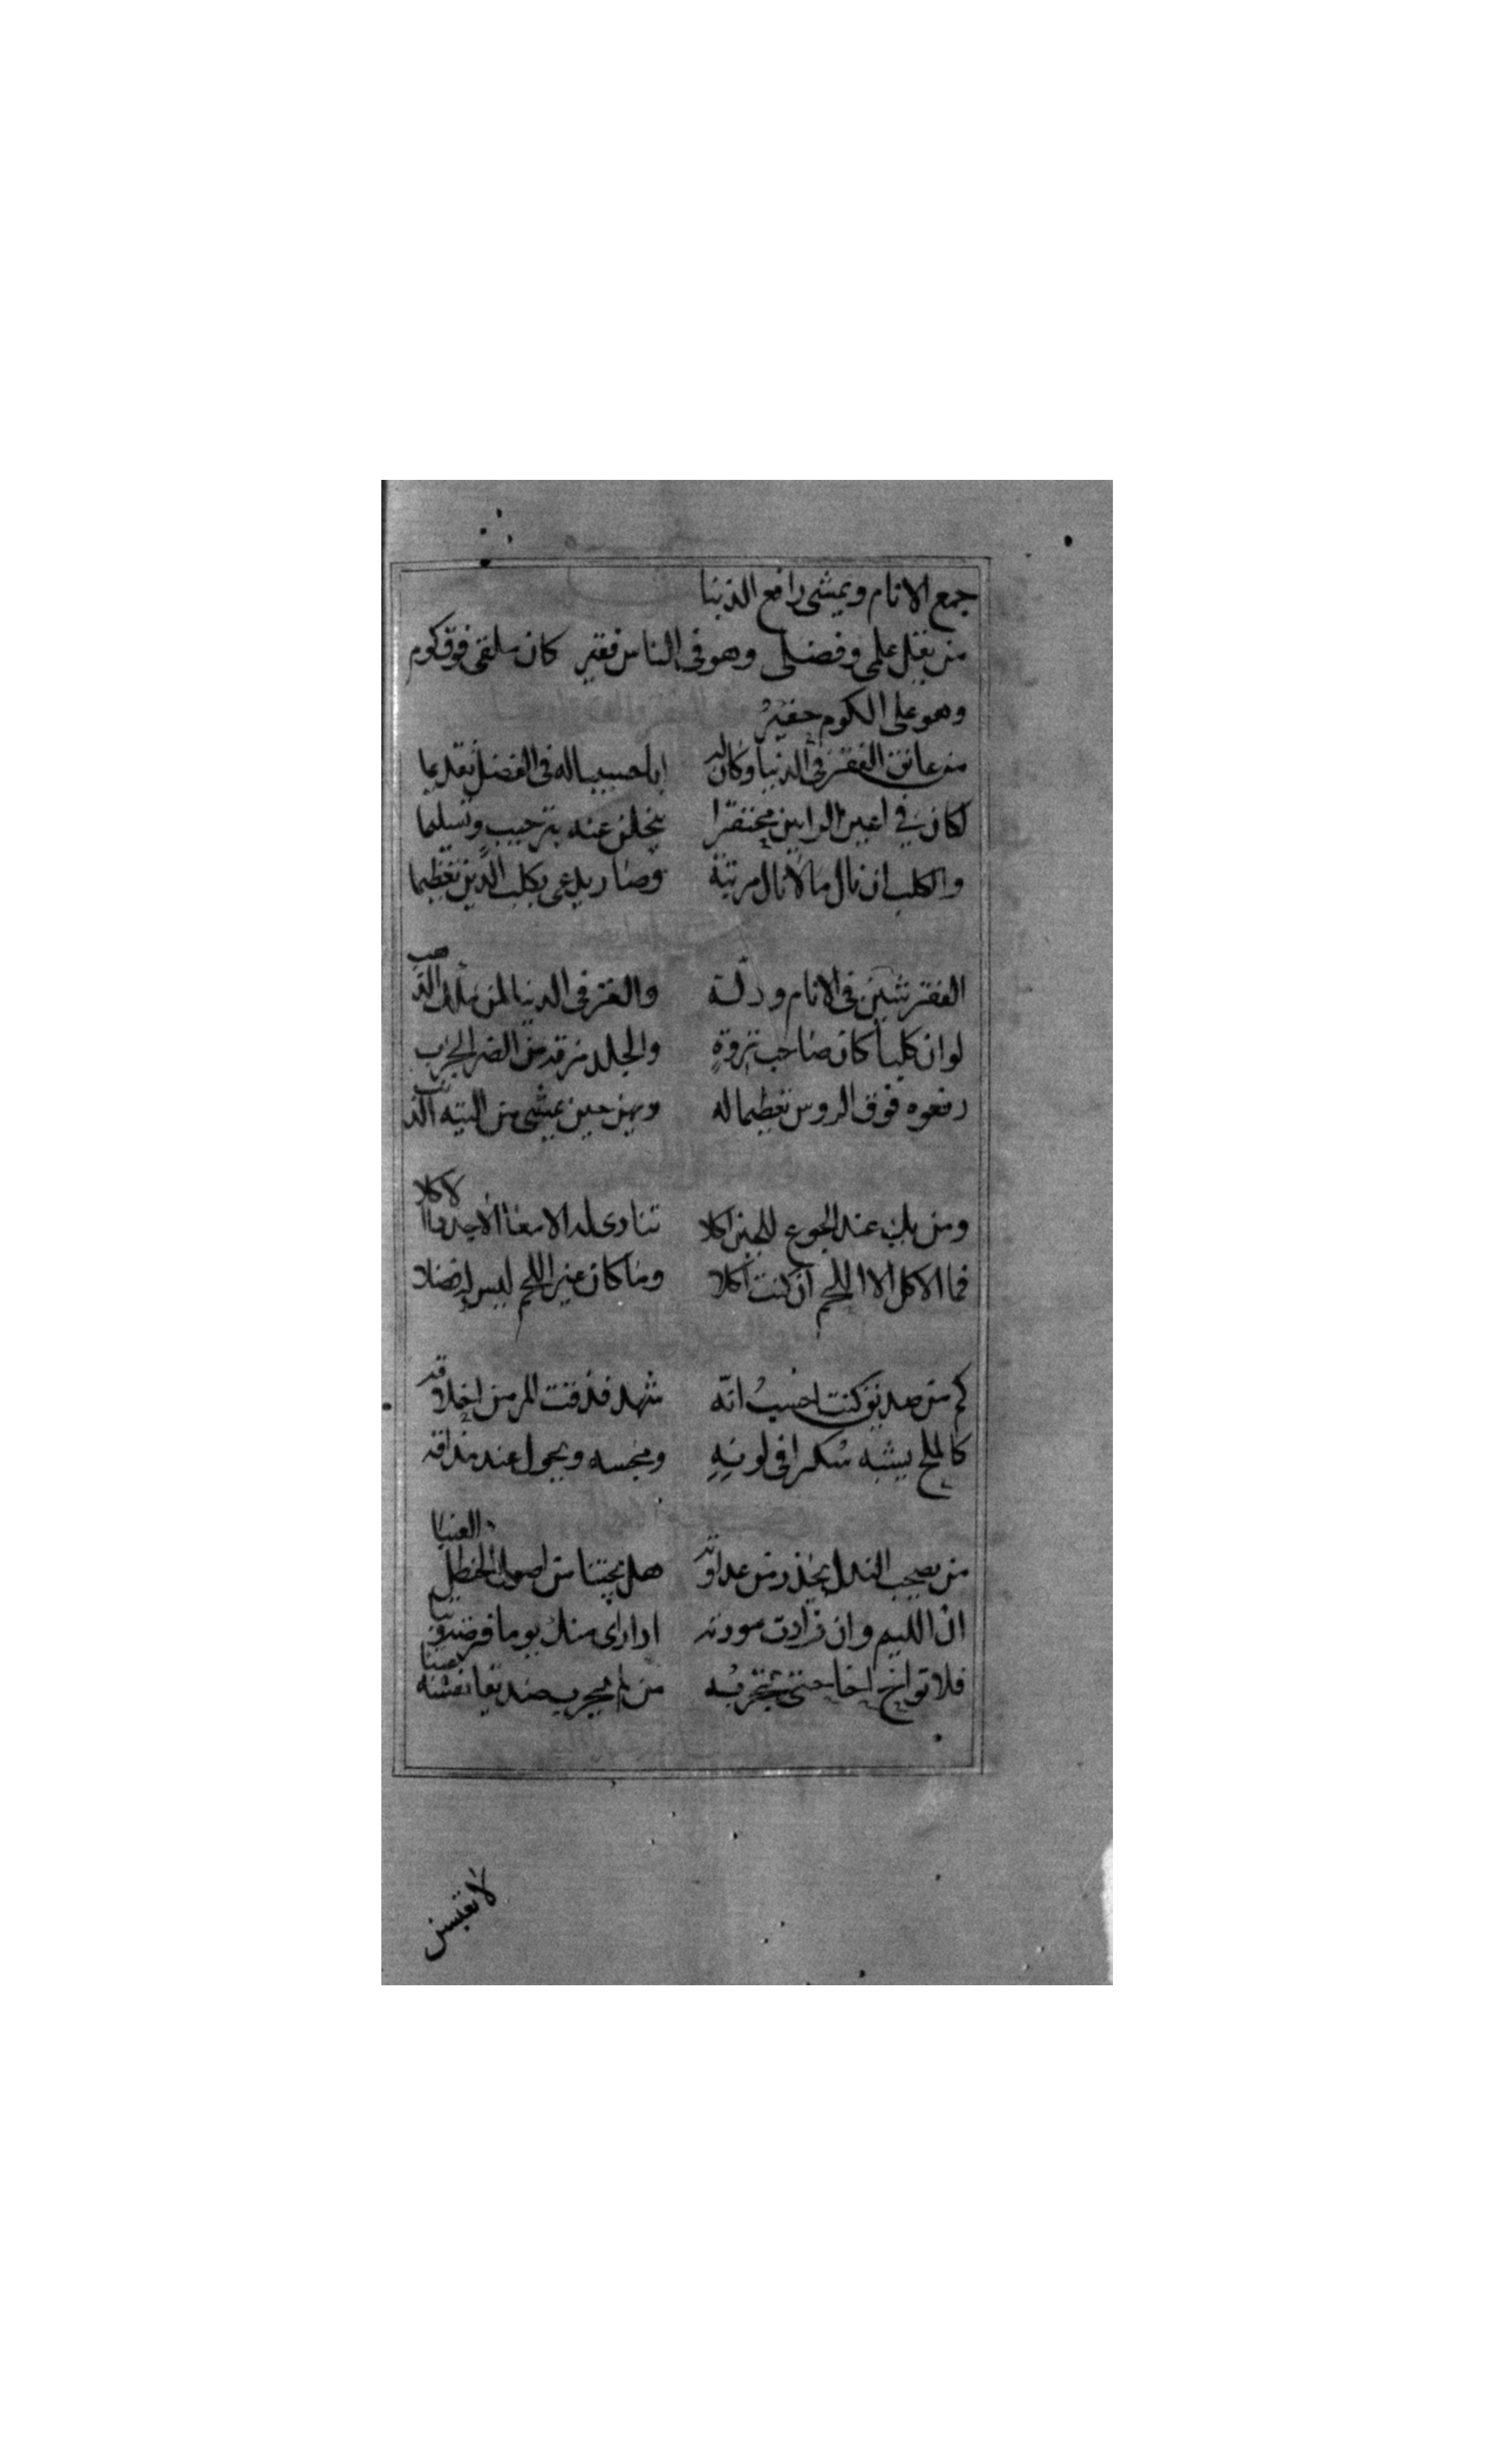 جمع الانام ويمشى رافع الذنبا
من يقل علمى وفضلى وهو فى الناس فقير كان ملقى فوق كوم
وهو على الكوم حقير
من عانق الفقر فى الدنيا وكان له ابا حسيبا له فى الفضل تقديما
لكان فى اعين الرايين محتقرا يخلق عنه بترحيب وتسليما
والكلب ان نال مالا نال مرتبة وصار يدعى بكلب الدين تعظيما
الفقر شين فى الانام وذلة والعز فى الدنيا لمن ملك الذهب
لو ان كلبا كان صاحب ثروة والجلد مزقه من الضر الجرب
رفعوه فوق الروس تعظيما له ويهز حين يمشى من التيه الذنب
ومن يك عند الجوع للجبن اكلا تنادى له الامعا
فما الاكل الا اللحم ان كنت اكلا وما كان غير اللحم ليس
كم من صديق كنت احسب انه شهد فذقت المر من اخلاقه
كالملح يشبه سكرا فى لونه ومجسه ويحول عند مذاقه
من يصحب الندل يحذر من عداوته هل يجتنا من اصول الحنظل العنبا
ان اللييم وان زادت مودته اذا راى منك يوما فرصة وثبا
فلا تواخ اخا حتى تجربه من لم يجرب صديقا
لا تقبس